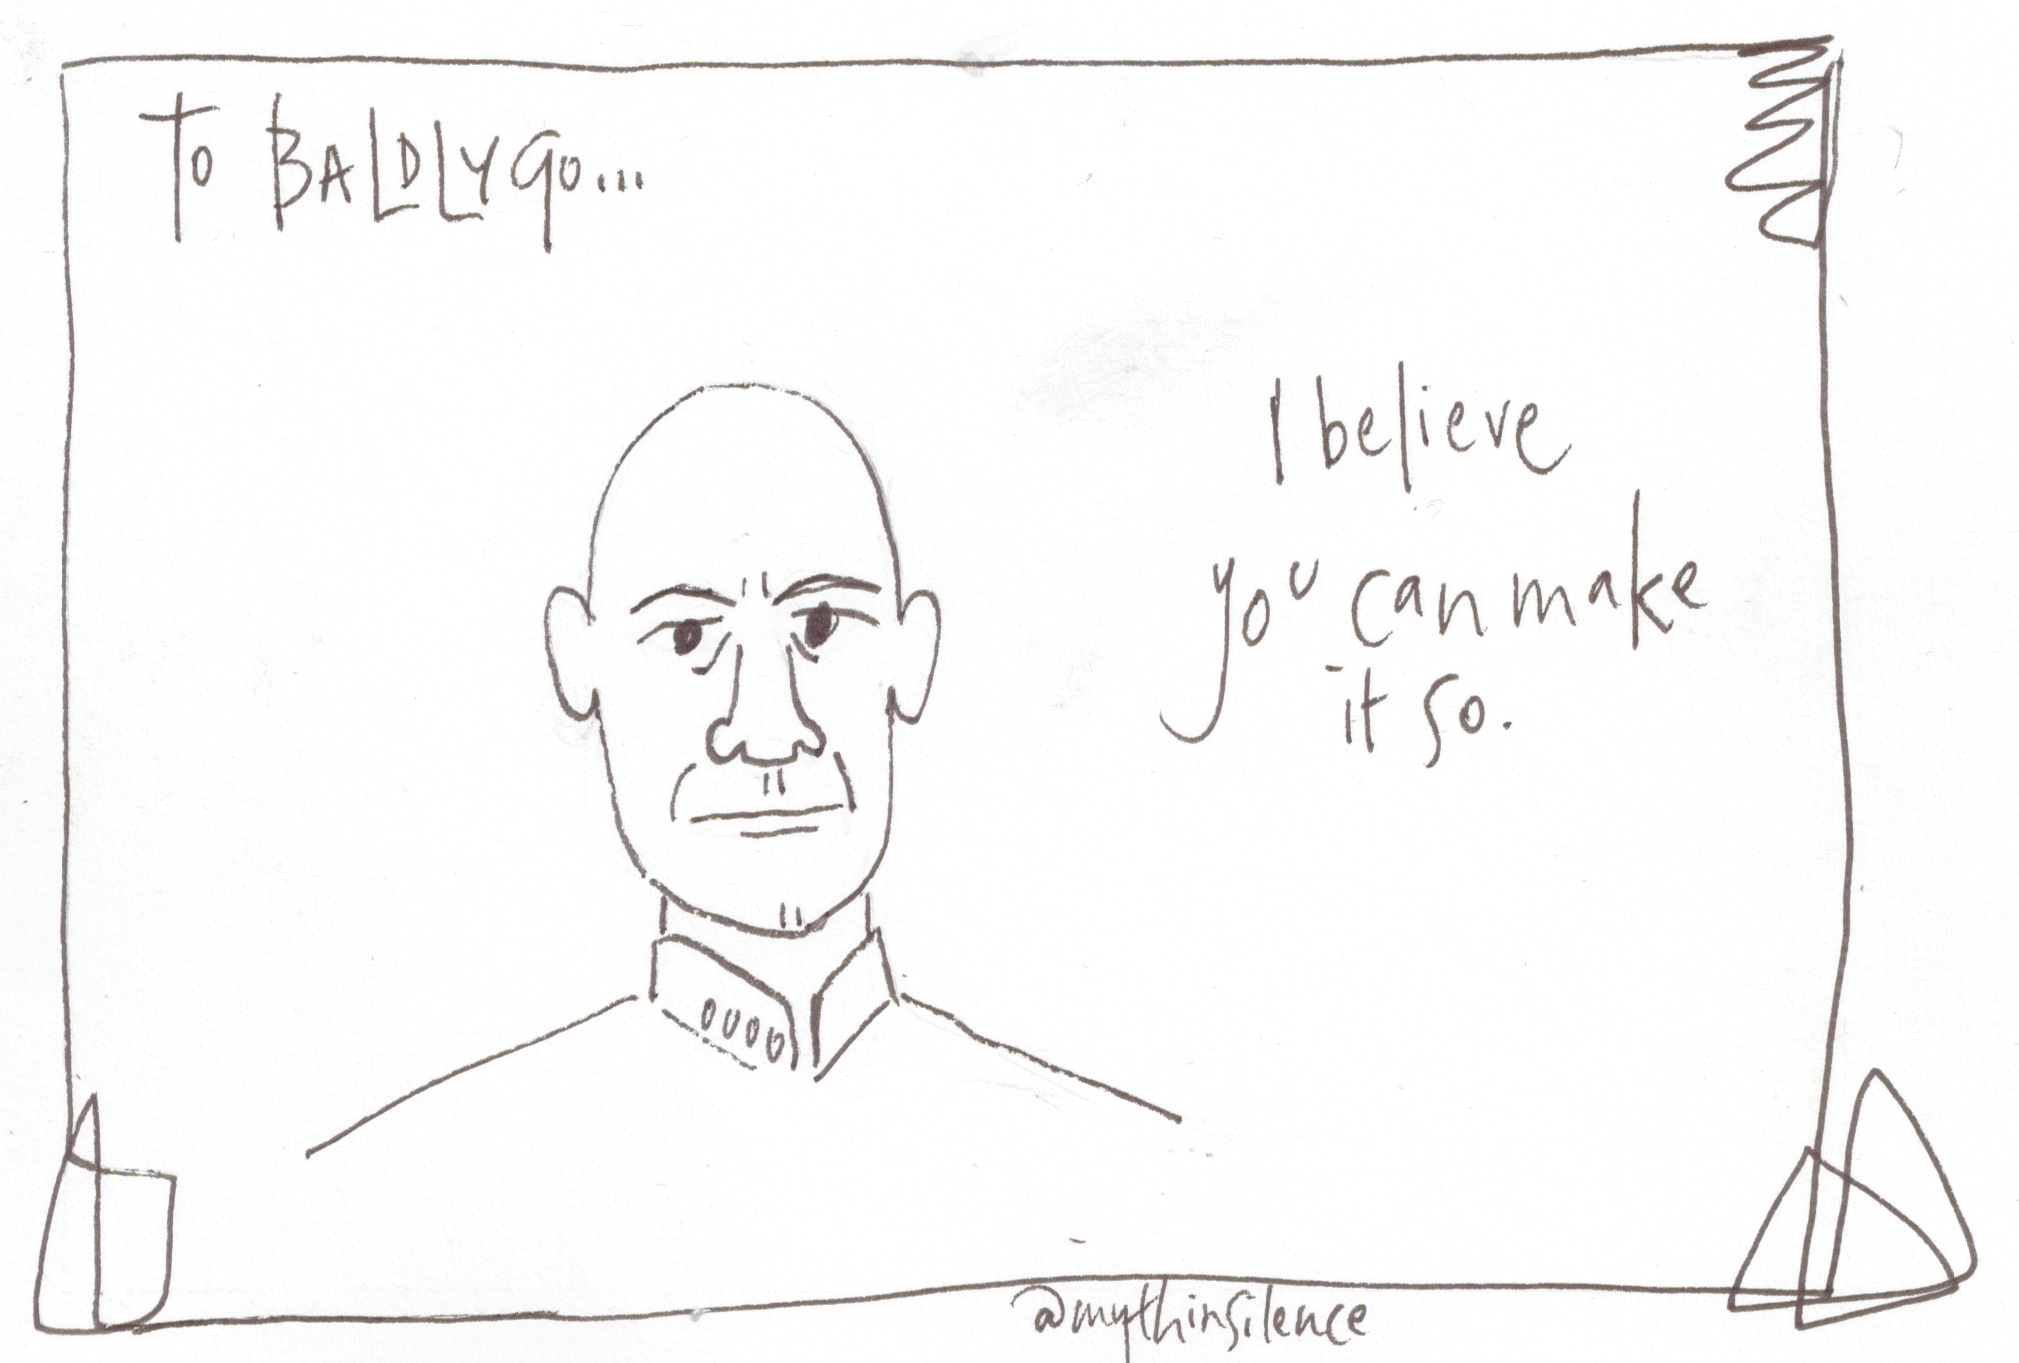 To BALDLY go...
I believe
you can make
it so.
@mythinsilence